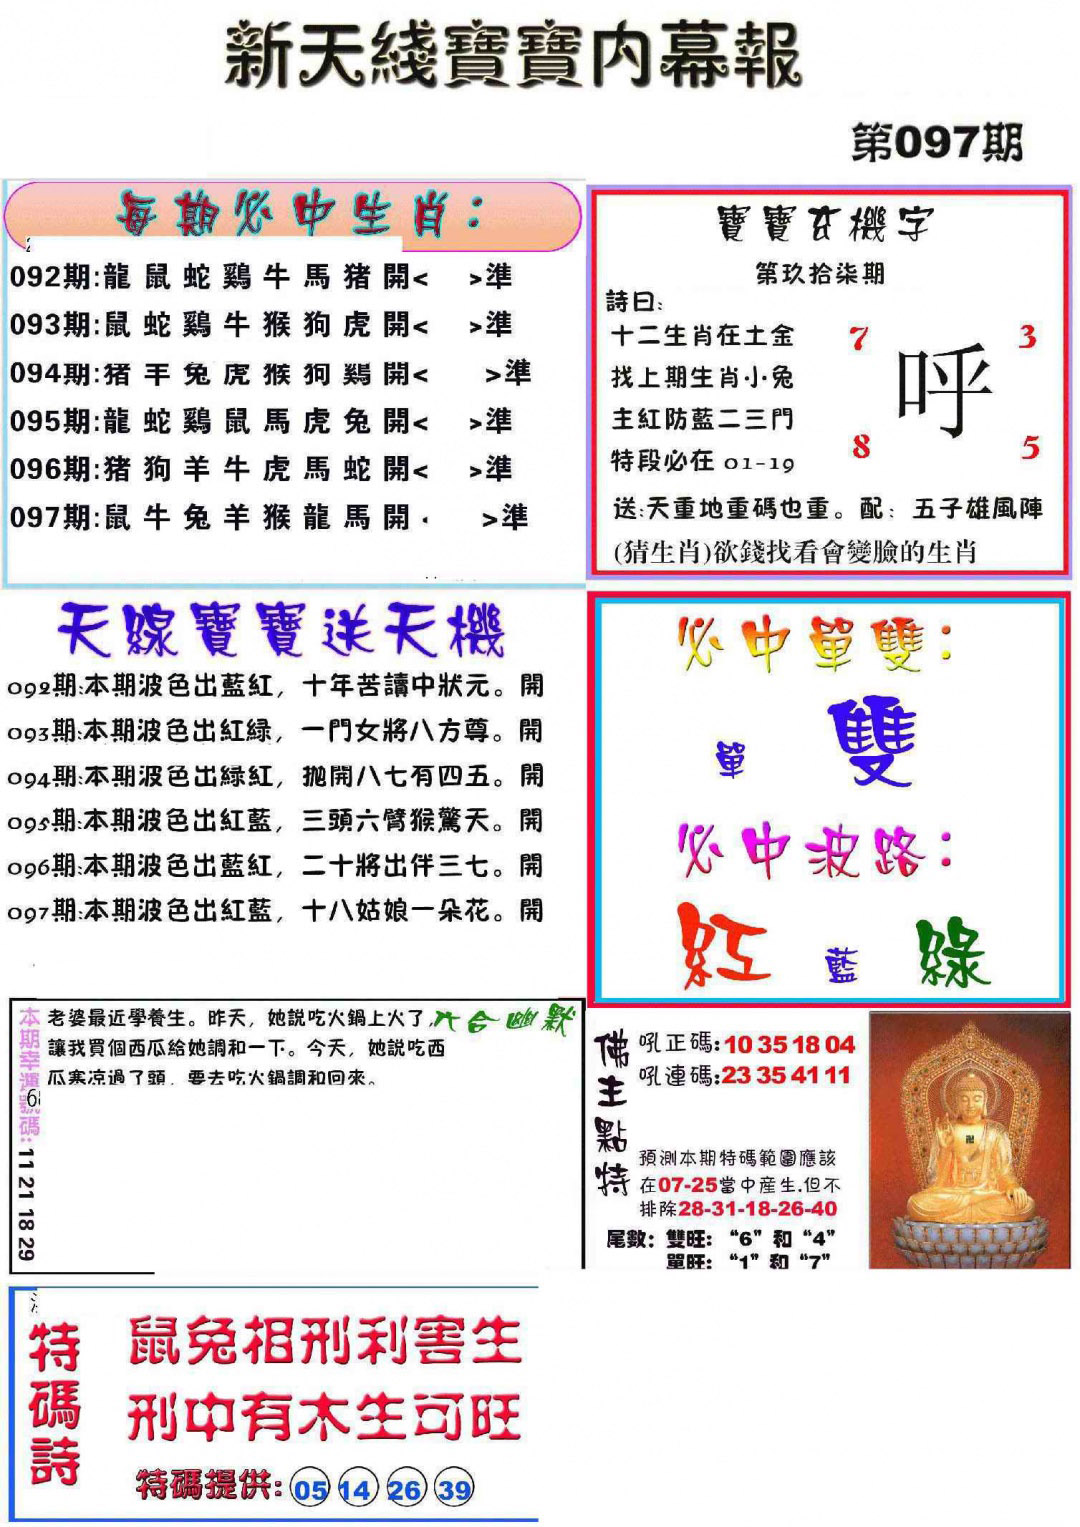 新天綫寶寶内幕報
第097期
每期必中生肖:
092期:龍鼠蛇鷄牛馬猪開< >準
093期:鼠蛇鷄牛猴狗虎開< >準
094期:猪羊兔虎猴狗鷄開< >準
095期:龍蛇鷄鼠馬虎兔開< >準
096期:猪狗羊牛虎馬蛇開< >準
097期:鼠牛兔羊猴龍馬開 >準
寶寶玄機字
第玖拾柒期
詩曰:
十二生肖在土金
找上期生肖小兔
主紅防藍二三門
特段必在 01-19
7 3
呼
8 5
送:天重地重碼也重。配: 五子雄風陣
(猜生肖)欲錢找看會變臉的生肖
天線寶寶送天機
092期:本期波色出藍紅, 十年苦讀中狀元。開
093期:本期波色出紅緑, 一門女將八方尊。開
094期:本期波色出緑紅, 拋開八七有四五。開
095期:本期波色出紅藍, 三頭六臂猴驚天。開
096期:本期波色出藍紅, 二十將出伴三七。開
097期:本期波色出紅藍, 十八姑娘一朵花。開
必中單雙:
單 雙
必中波路:
紅 藍 綠
本期幸運號碼: 11 21 18 29
六合幽默
老婆最近學養生。昨天, 她說吃火鍋上火了,
讓我買個西瓜給她調和一下。今天, 她說吃西
瓜寒凉過了頭, 要去吃火鍋調和回來。
佛主點特
吼正碼:10 35 18 04
吼連碼:23 35 41 11
預測本期特碼範圍應該
在07-25當中産生.但不
排除28-31-18-26-40
尾數: 雙旺: “6” 和 “4”
單旺: “1” 和 “7”
特碼詩
鼠兔相刑利害生
刑中有木生可旺
特碼提供: 05 14 26 39